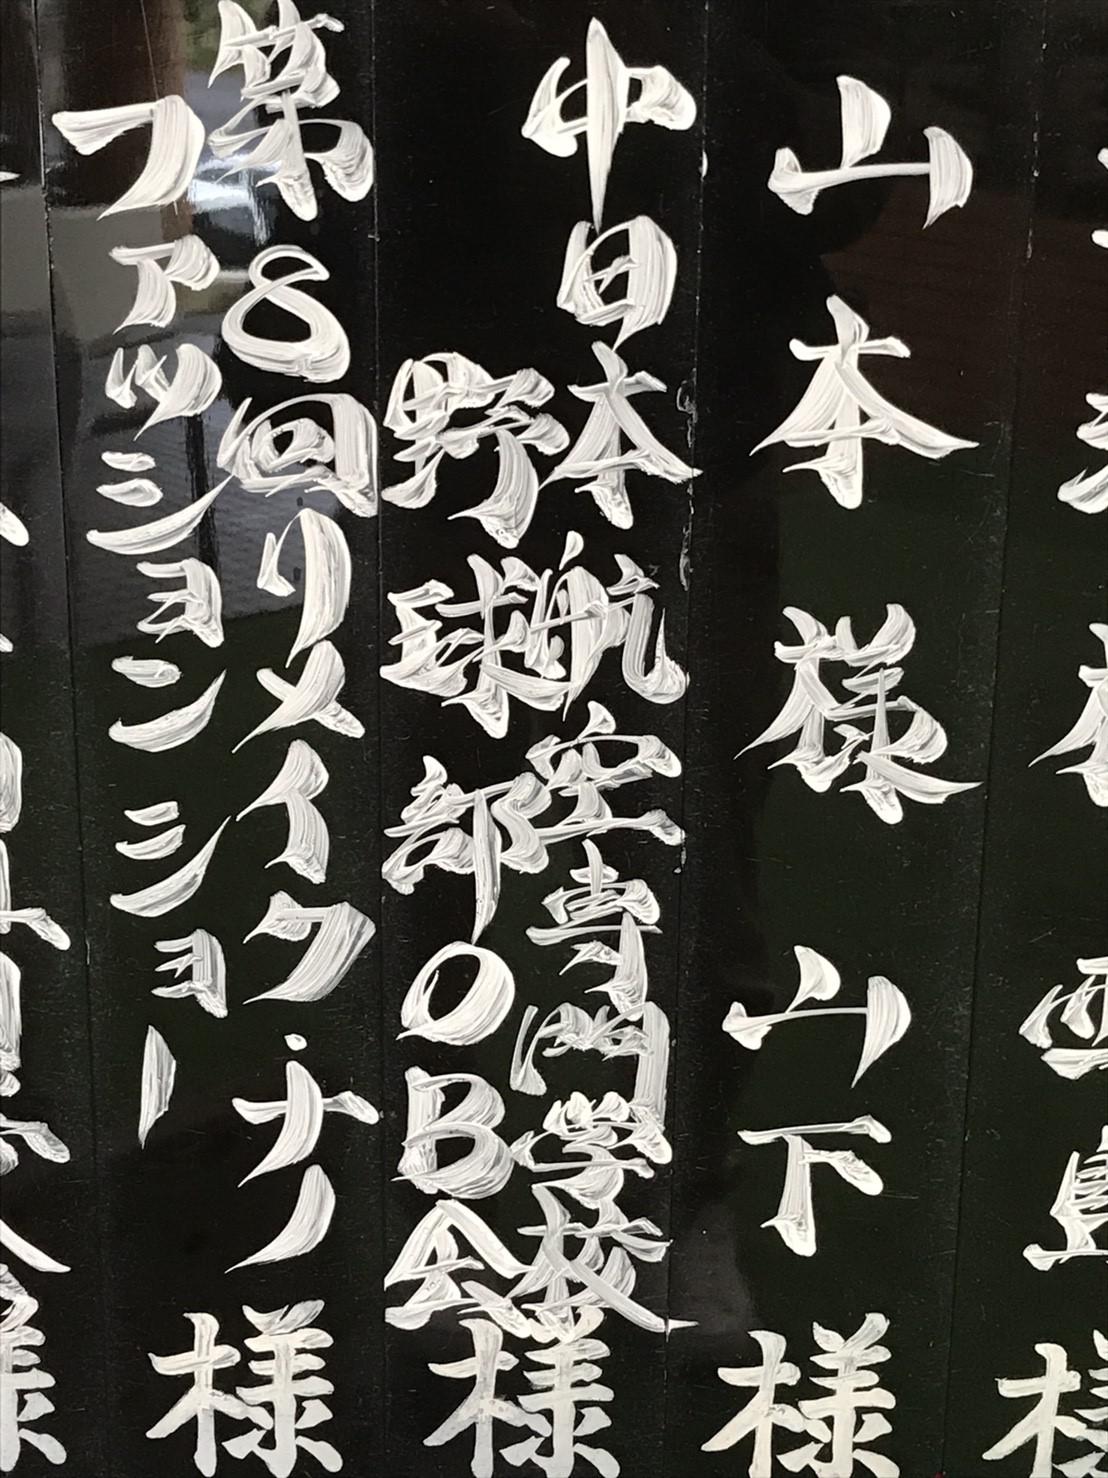 山本様
山下様
中日本航空専門学校
野球部OB会様
第8回リメイク・ナノ
ファッションショー様